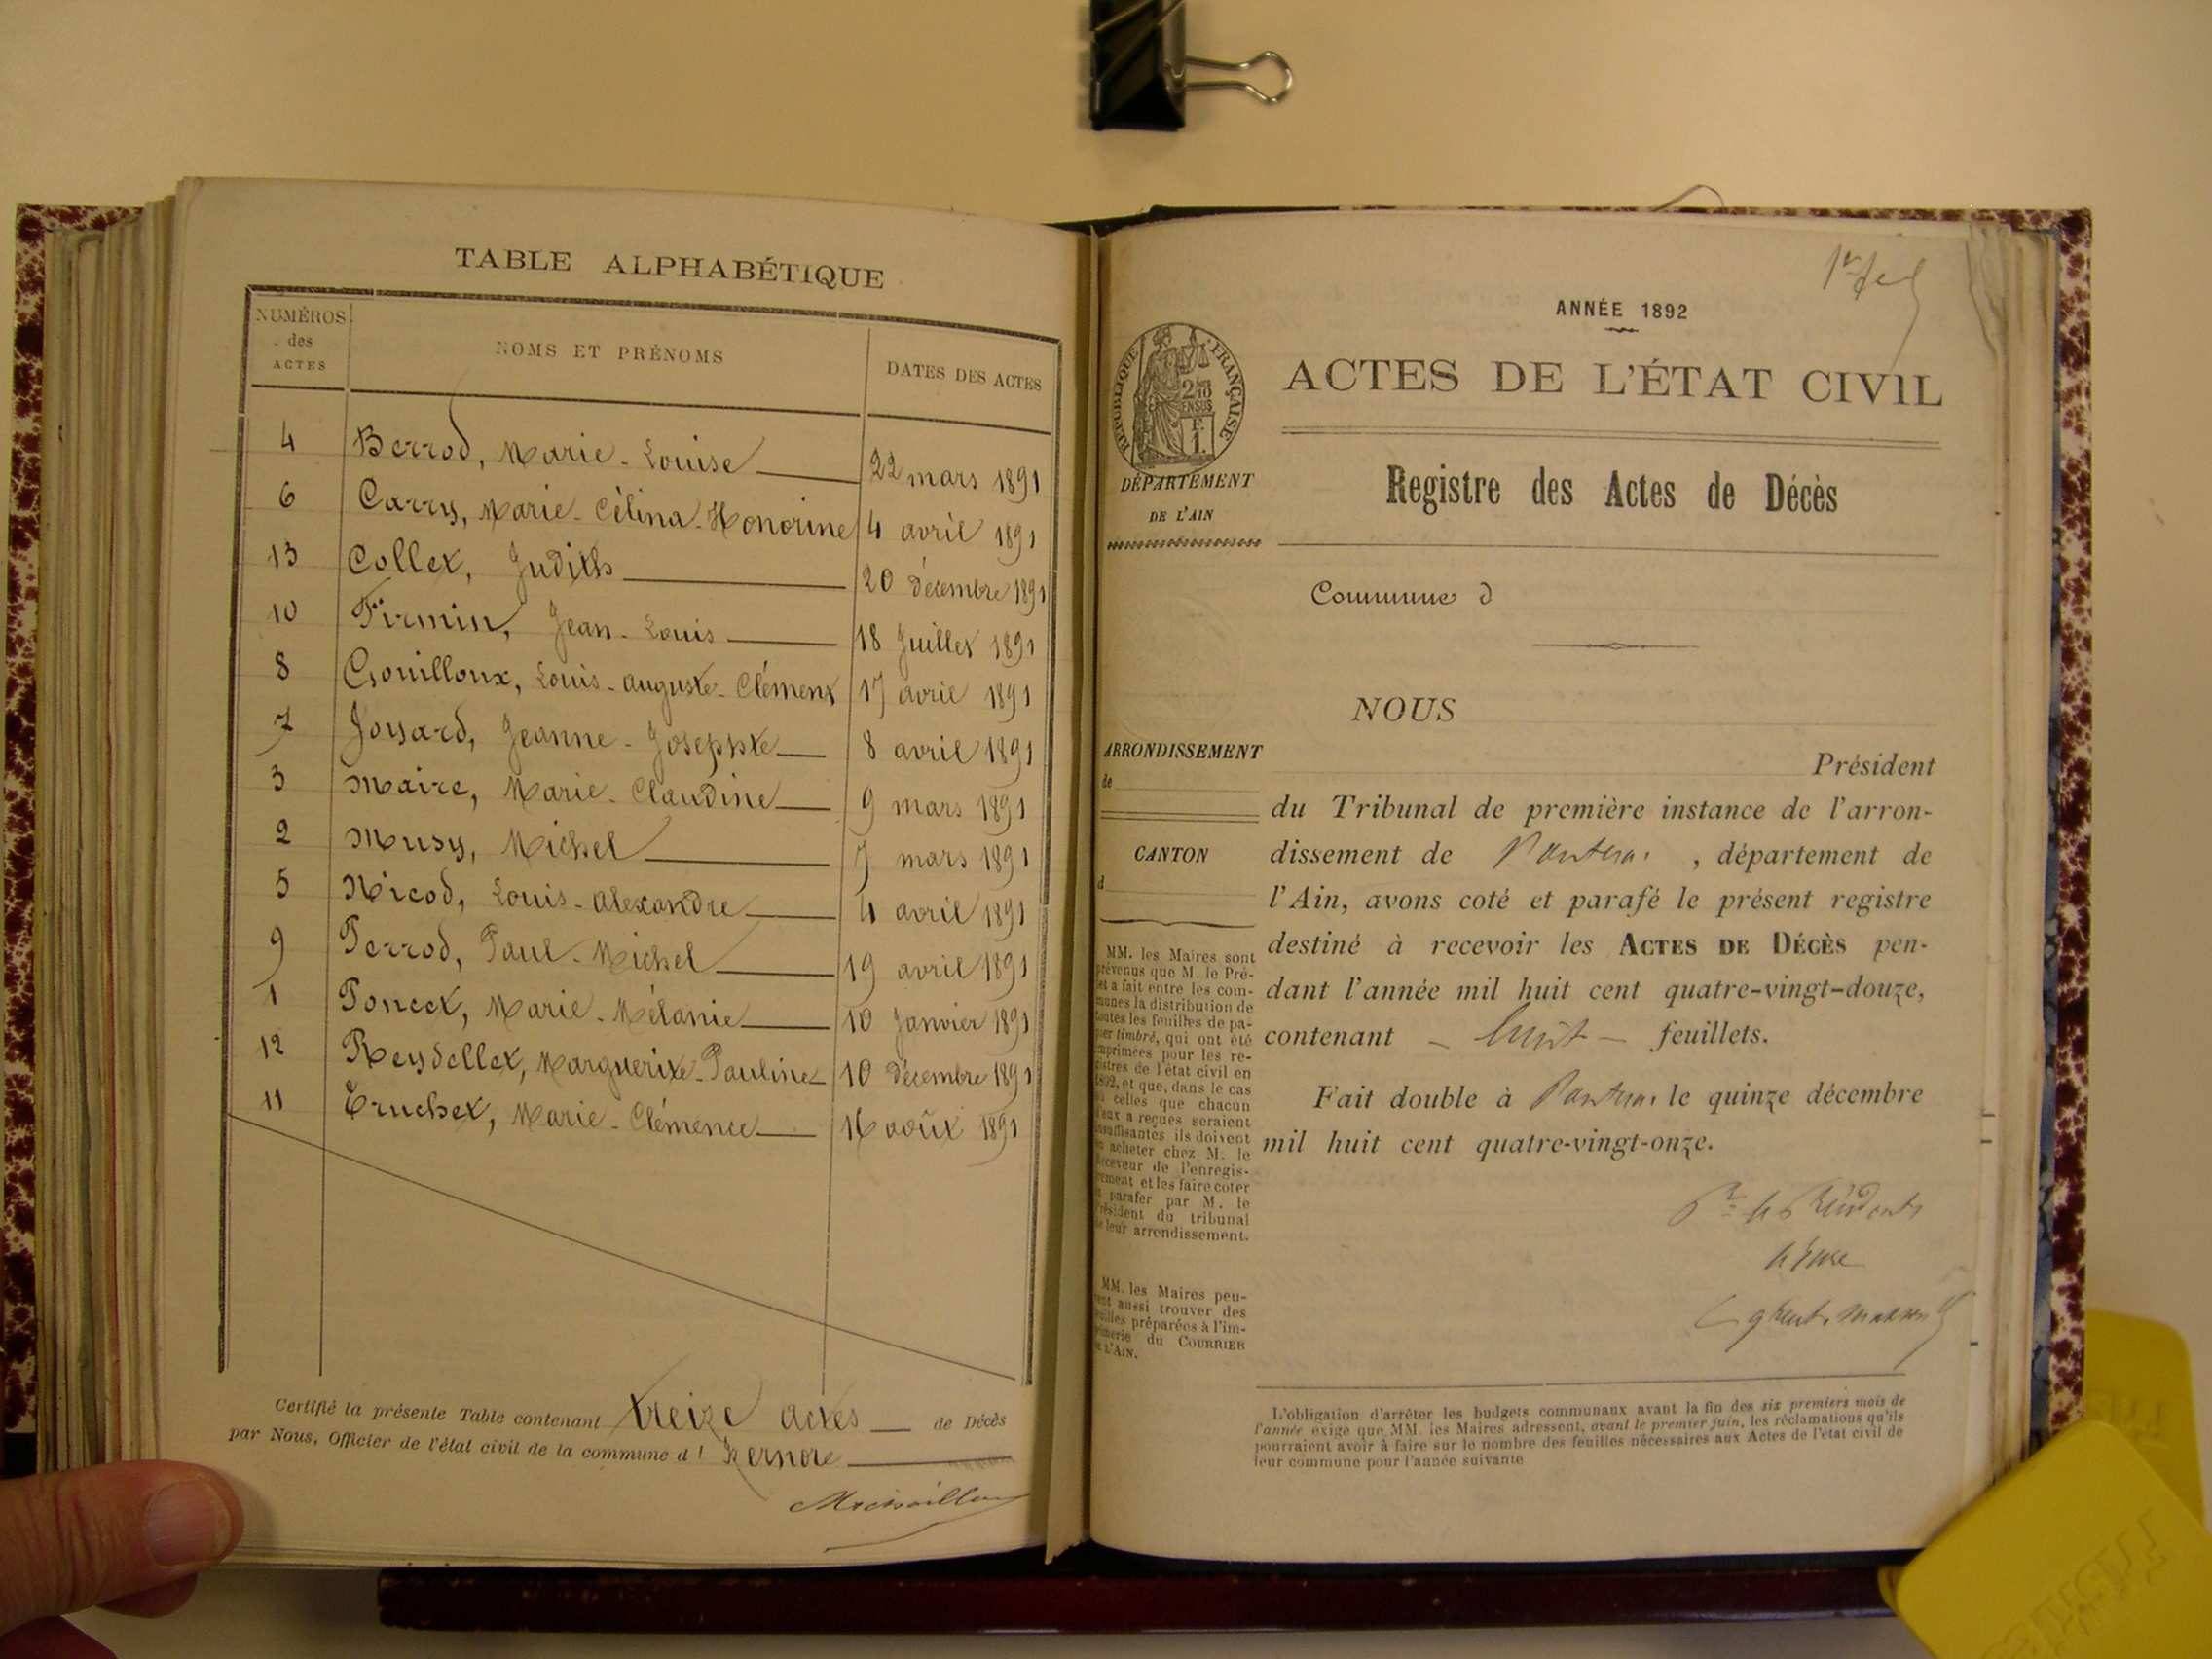 TABLE ALPHABÉTIQUE
NUMÉROS des ACTES
NOMS ET PRÉNOMS
DATES DES ACTES
4 Berrod, Marie-Louise 22 mars 1891
6 Carry, Marie-Célina-Honorine 4 avril 1891
13 Collet, Judith 20 décembre 1891
10 Firmin, Jean-Louis 18 Juillet 1891
8 Gouilloux, Louis-Auguste-Clément 17 avril 1891
7 Joyard, Jeanne-Josephte 8 avril 1891
3 Maire, Marie-Claudine 9 mars 1891
2 Musy, Michel 7 mars 1891
5 Nicod, Louis-Alexandre 4 avril 1891
9 Perrod, Paul-Michel 19 avril 1891
1 Poncet, Marie-Mélanie 10 Janvier 1891
12 Reydellet, Marguerite-Pauline 10 décembre 1891
11 Truchet, Marie-Clémence 16 août 1891
Certifié la présente Table contenant treize actes de Décès
par Nous, Officier de l'état civil de la commune d'Izernore
1er
ANNÉE 1892
RÉPUBLIQUE FRANÇAISE
ACTES DE L'ÉTAT CIVIL
Registre des Actes de Décès
DÉPARTEMENT
DE L'AIN
Commune d
NOUS
ARRONDISSEMENT
de
Président
du Tribunal de première instance de l'arron-
CANTON
d
dissement de Nantua, département de
l'Ain, avons coté et parafé le présent registre
destiné à recevoir les ACTES DE DÉCÈS pen-
dant l'année mil huit cent quatre-vingt-douze,
contenant - huit - feuillets.
Fait double à Nantua le quinze décembre
mil huit cent quatre-vingt-onze.
Pr le Président
le Juge
MM. les Maires sont
prévenus que M. le Pré-
fet a fait entre les com-
munes la distribution de
toutes les feuilles de pa-
pier timbré, qui ont été
imprimées pour les re-
gistres de l'état civil en
1892, et que, dans le cas
où celles que chacun
d'eux a reçues seraient
insuffisantes ils doivent
en acheter chez M. le
Receveur de l'enregis-
trement et les faire coter
et parafer par M. le
Président du tribunal
de leur arrondissement.
MM. les Maires peu-
vent aussi trouver des
feuilles préparées à l'im-
primerie du COURRIER
DE L'AIN.
L'obligation d'arrêter les budgets communaux avant la fin des six premiers mois de
l'année exige que MM. les Maires adressent, avant le premier juin, les réclamations qu'ils
pourraient avoir à faire sur le nombre des feuilles nécessaires aux Actes de l'état civil de
leur commune pour l'année suivante